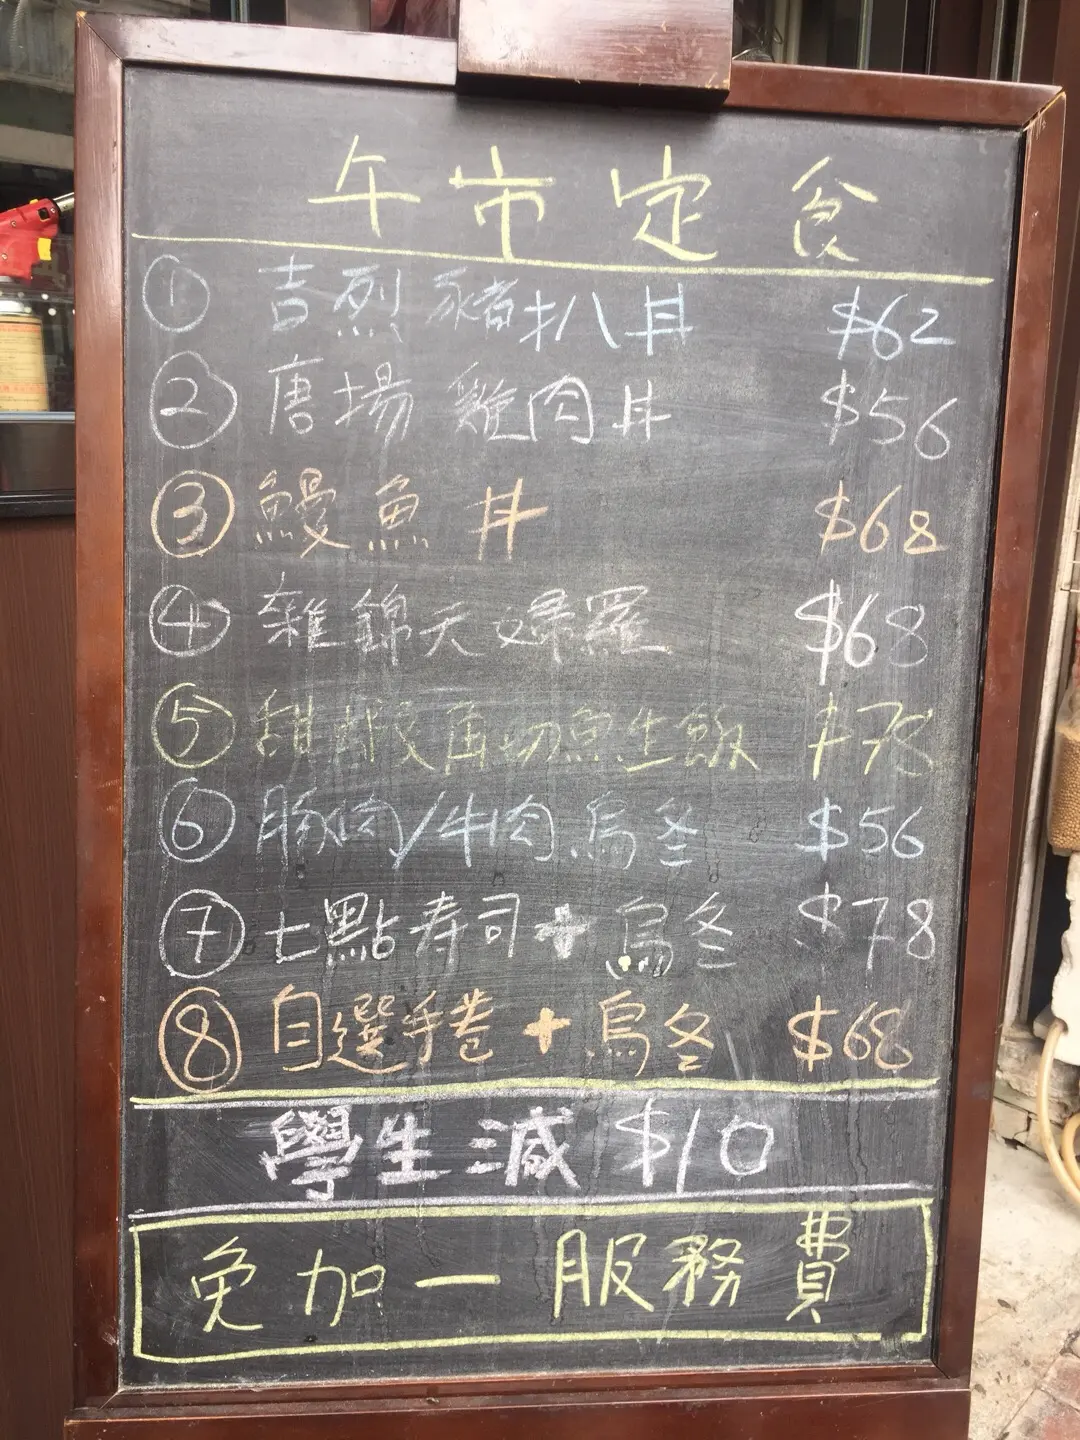 午市定食
① 吉烈豬扒丼 $62
② 唐揚雞肉丼 $56
③ 鰻魚丼 $68
④ 雜錦天婦羅 $68
⑤ 甜蝦角切魚生飯 $78
⑥ 豚肉/牛肉烏冬 $56
⑦ 七點寿司+烏冬 $78
⑧ 自選手卷+烏冬 $68
學生減 $10
免加一服務費